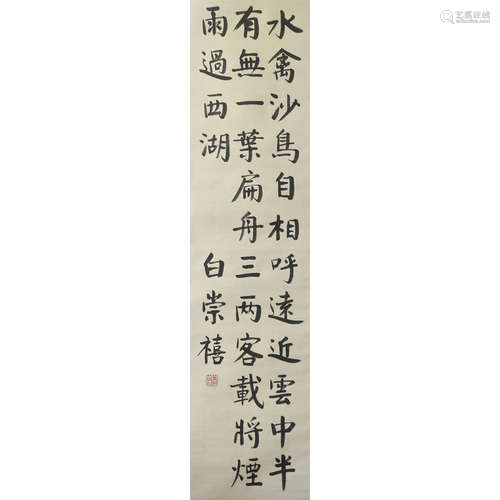 水禽沙鳥自相呼遠近雲中半
有無一葉扁舟三两客載將煙
雨過西湖
白崇禧